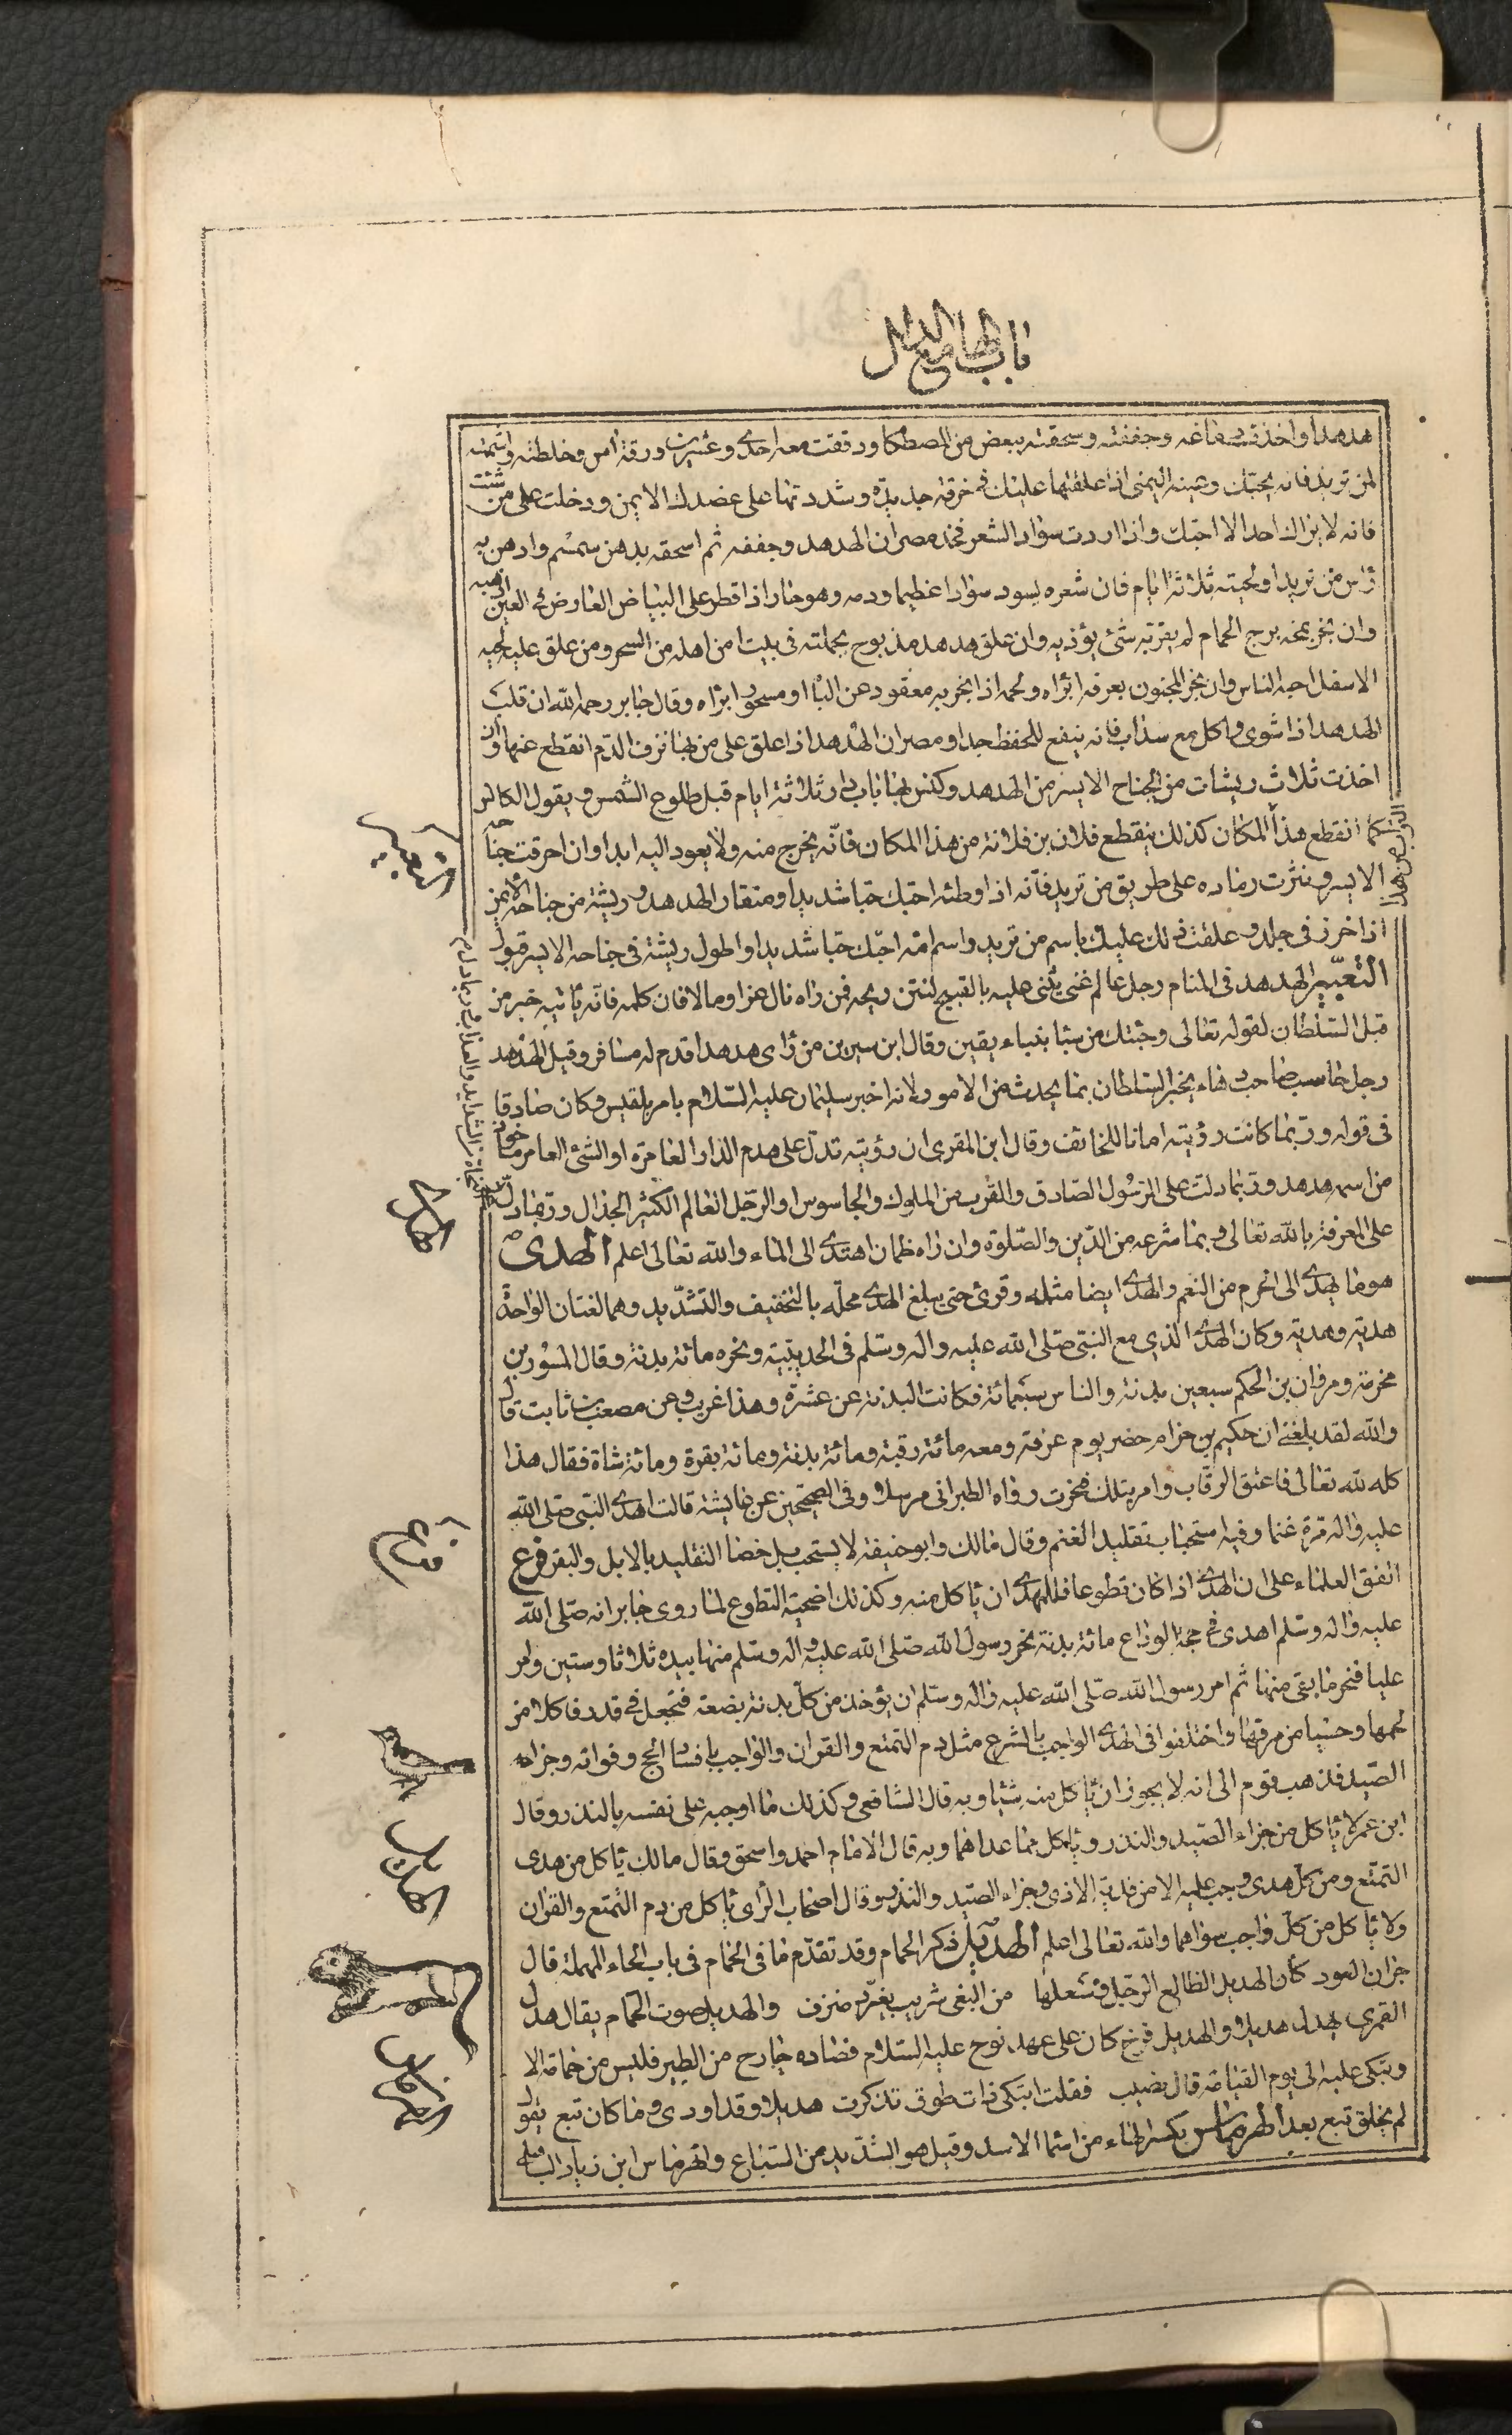 باب الهاء مع الدال
هدهدا واخذت دماغه وجففته وسحقته ببعض من المصطكا ودققت معه احدى وعشرين ورقة آس وخلطته واشممته
لمن تريد فانه يحبّك وعينه اليمنى اذا علقتها عليك فى خرقة جديدة وشددتها على عضدك الايمن ودخلت على من شئت
فانه لا يراك احد الا احبّك واذا اردت سواد الشعر فخذ مصران الهدهد وجففه ثم اسحقه بدهن سمسم وادهن به
رأس من تريد او لحيته ثلاثة ايام فان شعره يسود سوادا عظيما ودمه وهو حار اذا قطر على البياض العارض فى العين اذهبه
وان بخر بمخه برج الحمام لم يقربه شئ يؤذيه وان علق هدهد مذبوح بجملته فى بيت امن اهله من السحر ومن علق عليه لحيه
الاسفل احبه الناس وان بخر المجنون بعرفه ابرأه ولحمه اذا بخر به معقود عن النساء او مسحور ابرأه وقال جابر رحمه الله ان قلب
الهدهد اذا شوى واكل مع سذاب فانه ينفع للحفظ جدا ومصران الهدهد اذا علق على من بها نزف الدّم انقطع عنها وان
اخذت ثلاث ريشات من الجناح الايسر من الهدهد وكنس بها باب دار ثلاثة ايام قبل طلوع الشمس ويقول الكانس
كما انقطع هذا المكان كذلك ينقطع فلان بن فلانة من هذا المكان فانّه يخرج منه ولا يعود اليه ابدا وان احرقت جناحه
الايسر ونثرت رماده على طريق من تريد فانّه اذا وطئه احبّك حبّا شديدا ومنقار الهدهد وريشة من جناحه الايمن
اذا خرز فى جلد وعلقت ذلك عليك باسم من تريد واسم امّه احبّك حبّا شديدا واطول ريشة فى جناحه الايسر قبول
التعبير الهدهد فى المنام رجل عالم غنى يثنى عليه بالقبيح لنتن ريحه فمن راه نال عزا ومالا فان كلمه فانّه ياتيه خبر من
قبل السّلطان لقوله تعالى وجئتك من سبأ بنباء يقين وقال ابن سيرين من رأى هدهدا قدم له مسافر وقيل الهدهد
رجل حاسب صاحب دهاء يخبر السّلطان بما يحدث من الامور لانه اخبر سليمان عليه السّلام بامر بلقيس وكان صادقا
فى قوله وربّما كانت رؤيته امانا للخائف وقال ابن المقرى ان رؤيته تدلّ على هدم الدار العامرة او الشئ العامر ماخوذ
من اسمه هدهد وربّما دلت على الرّسول الصّادق والقرب من الملوك والجاسوس او الرّجل العالم الكثير الجدال وربّما دلّ
على المعرفة بالله تعالى وبما شرعه من الدّين والصّلوة وان راه ظمان اهتدى الى الماء والله تعالى اعلم الهدى
هو ما يهدى الى الحرم من النعم والهدى ايضا مثله وقرئ حتى يبلغ الهدى محلّه بالتخفيف والتشديد وهما لغتان الواحدة
هدية وهديّة وكان الهدى الذي مع النبىّ صلى الله عليه واله وسلم فى الحديبيّة ونحره مائة بدنة وقال المسور بن
مخرمة ومروان بن الحكم سبعين بدنة والناس سبعمائة فكانت البدنة عن عشرة وهذا غريب وعن مصعب بن ثابت قال
والله لقد بلغنى ان حكيم بن حزام حضر يوم عرفة ومعه مائة رقبة ومائة بدنة ومائة بقرة ومائة شاة فقال هذا
كله لله تعالى فاعتق الرقاب وامر بتلك فنحرت رواه الطبرانى مرسلا وفى الصحيحين عن عايشة قالت اهدى النبّى صلى الله
عليه واله مرة غنما وفيه استحباب تقليد الغنم وقال مالك وابو حنيفة لا يستحب بل خصا التقليد بالابل والبقر فرع
اتفق العلماء على ان الهدى اذا كان تطوعا فللمهدى ان ياكل منه وكذلك اضحية التطوع لما روى جابر انه صلى الله
عليه واله وسلم اهدى فى حجة الوداع مائة بدنة نحر رسول الله صلى الله عليه واله وسلم منها بيده ثلاثا وستين وامر
عليا فنحر ما بقى منها ثم امر رسول الله صلّى الله عليه واله وسلّم ان يؤخذ من كلّ بدنة بضعة فتجعل فى قدر فاكلا من
لحمها وحسيا من مرقها واختلفوا فى الهدى الواجب بالشرع مثل دم التمتع والقران والواجب بافساد الحج وفواته وجزاء
الصّيد فذهب قوم الى انه لا يجوز ان ياكل منه شيئا وبه قال الشافعى وكذلك ما اوجبه على نفسه بالنذر وقال
ابن عمر لا ياكل من جزاء الصّيد والنذر وياكل مما عداهما وبه قال الامام احمد واسحق وقال مالك ياكل من هدى
التمتّع ومن كلّ هدى وجب عليه الا من فدية الاذى وجزاء الصّيد والنذر وقال اصحاب الرأى ياكل من دم التمتع والقران
ولا ياكل من كلّ واجب سواهما والله تعالى اعلم الهديل ذكر الحمام وقد تقدّم ما فى الحمام فى باب الحاء المهملة قال
جران العود كأن الهديل الظالع الرّجل وسطها من البغى شريب يغرّد منزف والهديل صوت الحمام يقال هدل
القمرى يهدل هديلا والهديل فرخ كان على عهد نوح عليه السّلام فصاده جارح من الطير فليس من حمامة الا
وتبكى عليه الى يوم القيامة قال نصيب فقلت اتبكى ذات طوق تذكرت هديلا وقد اودى وما كان تبع يقول
لم يخلق تبع بعد الهرماس بكسر الهاء من اسماء الاسد وقيل هو الشديد من السّباع والهرماس ابن زياد الباهلى
التعبير
الهدى
فرع
الهديل
الهرماس